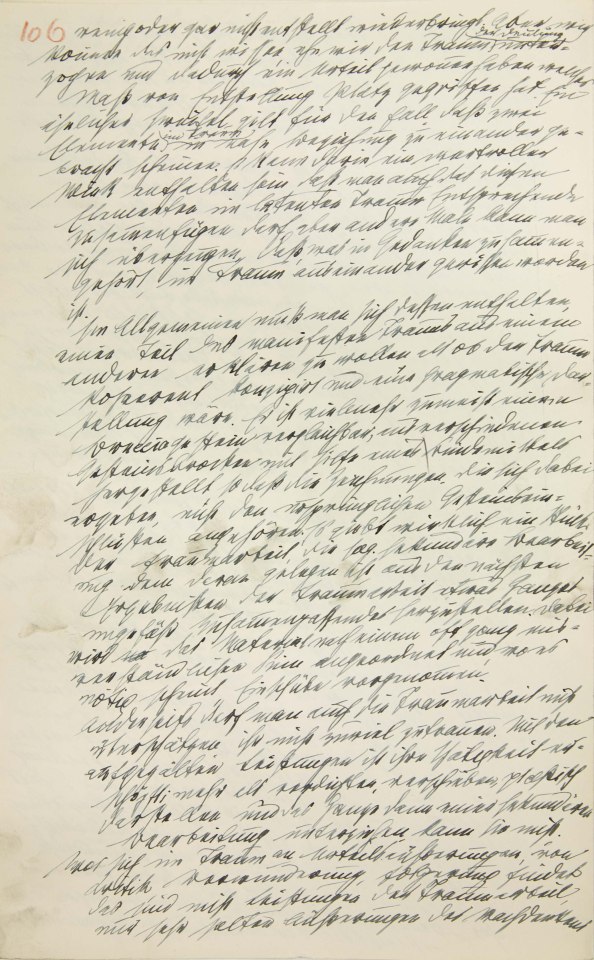 106
wenig oder gar nicht entstellt wiederbringt, aber wir
können das nicht wissen ehe wir den Traum der Deutung unter-
zogen und dadurch ein Urteil gewonnen haben welches
Maß von Entstellung Platz gegriffen hat. Ein
ähnlicher Zweifel gilt für den Fall daß zwei
Elemente im Traum in nahe Beziehung zu einander ge-
bracht scheinen. Es kann darin ein wertvoller
Wink enthalten sein, daß man auch das diesen
Elementen im latenten Traum Entsprechende
zusammenfügen darf, aber andere Male kann man
sich überzeugen, daß, was in Gedanken zusammen-
gehört, im Traum auseinander gerissen worden
ist.
Im Allgemeinen muß man sich dessen enthalten,
einen Teil des manifesten Traums aus einem
anderen erklären zu wollen als ob der Traum
kohärent konzipirt und eine pragmatische Dar-
stellung wäre. Er ist vielmehr zumeist einem
Brecciagestein vergleichbar, aus verschiedenen
Gesteinsbrocken mit Hilfe eines Bindemittels
hergestellt so daß die Zeichnungen, die sich dabei
ergeben, nicht den ursprünglichen Gesteinein-
schlüssen angehören. Es giebt wirklich ein Stück
der Traumarbeit, die sog. sekundäre Bearbeit-
ung dem daran gelegen ist aus den nächsten
Ergebnissen der Traumarbeit etwas Ganzes
ungefähr Zusammenpassendes herzustellen. Dabei
wird das Material nach einem oft ganz miß-
verständlichen Sinn angeordnet und, wo es
nötig scheint Einschübe vorgenommen.
Anderseits darf man auch die Traumarbeit nicht
überschätzen, ihr nicht zuviel zutrauen. Mit den
aufgezählten Leistungen ist ihre Tätigkeit er-
schöpft; mehr als verdichten, verschieben, plastisch
darstellen und das Ganze dann einer sekundären
Bearbeitung unterziehen, kann sie nicht.
Was sich im Traum an Urteilsäußerungen, von
Kritik Verwunderung, Folgerung findet
das sind nicht Leistungen der Traumarbeit,
nur sehr selten Äußerungen des Nachdenkens